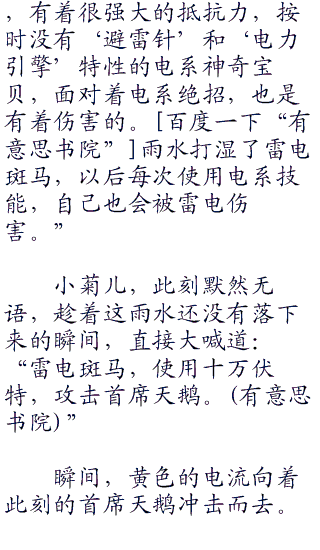 ，有着很强大的抵抗力，按
时没有‘避雷针’和‘电力
引擎’特性的电系神奇宝
贝，面对着电系绝招，也是
有着伤害的。[百度一下“有
意思书院”]雨水打湿了雷电
斑马，以后每次使用电系技
能，自己也会被雷电伤
害。”
小菊儿，此刻默然无
语，趁着这雨水还没有落下
来的瞬间，直接大喊道：
“雷电斑马，使用十万伏
特，攻击首席天鹅。(有意思
书院)”
瞬间，黄色的电流向着
此刻的首席天鹅冲击而去。